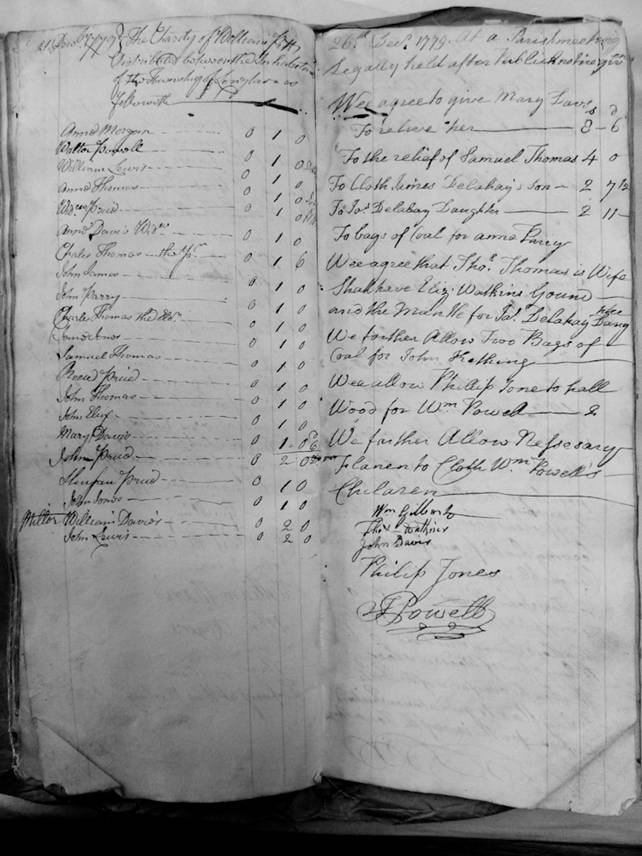 21 Decr 1779 The Charity of William
Distributed between the Inhabitants
of the Township of as
followeth
Anne Morgan 0 1 0
Walter Powell 0 1 0
William Lewis 0 1 0
Anne Thomas 0 1 0
Prid 0 1 0
Anne Davis Wdw 0 1 0
Charles Thomas the Yr 0 1 6
John James 0 1 0
John Parry 0 1 0
Charles Thomas the 0 1 0
0 1 0
Samuel Thomas 0 1 0
Reece Prid 0 1 0
John Thomas 0 1 0
John 0 1 0
Mary Davis 0 1 0
John Prid 0 2 0
Prid 0 1 0
John Jones 0 1 0
William Davis 0 2 0
John Lewis 0 2 0
26th Decr 1779 At a Parish meeting
Legally held after Publick notice given
Wee agree to give Mary Davis s d
To relieve her 8 - 6
To the relief of Samuel Thomas 4 0
To Cloth James Delahay's son 2 7½
To Jas Delahay Daughter 2 11
To bags of Coal for anne Parry
Wee agree that Thos Thomas is Wife
Shall have Eliz: Watkins Gound
and the Mantle for Jas Delahay Daug
We farther Allow Two Bags of
Coal for John
Wee allow Phillip Jone to hall
Wood for Wm Powell 2
We farther Allow Nessesary
Flanen to Cloth Wm Powell's
Children
Wm Gilbert
Thos Watkins
John Davis
Philip Jones
Powell